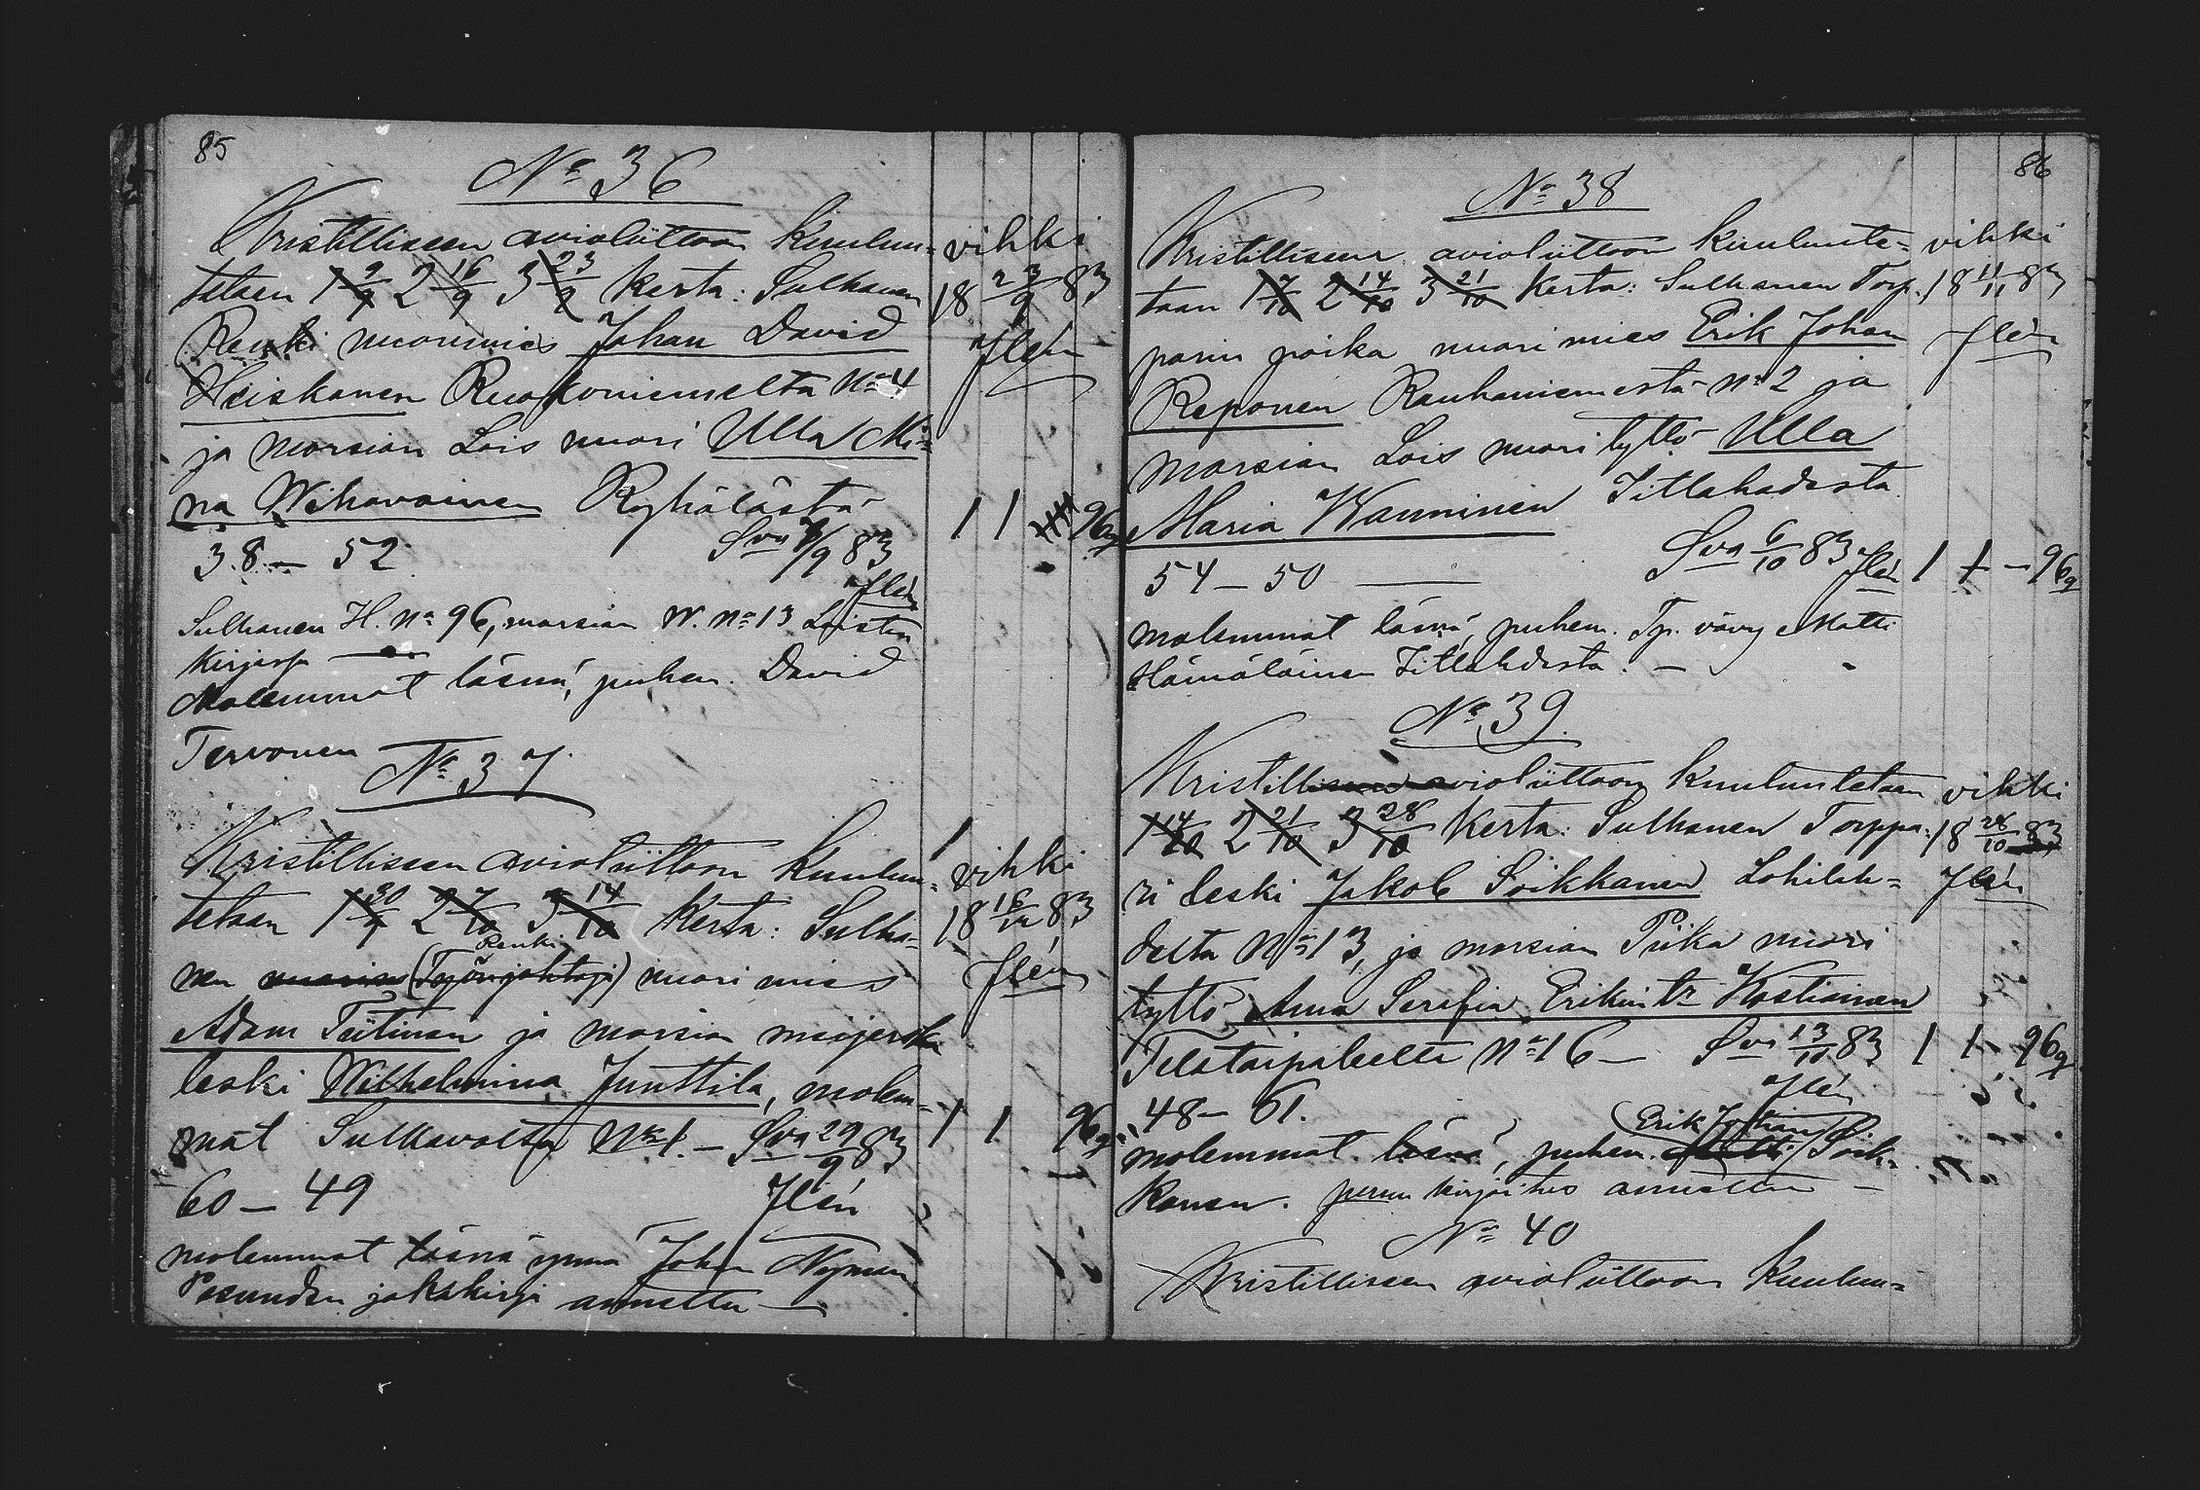 85
No 36
Kristilliseen avioliittoon kuulun=
tetaan 1 9/9 2 16/9 3 23/9 kerta: Sulhanen
Renki nuorimies Johan David
Heiskanen Ruokoniemeltä No 4
ja morsian Lois nuori Ulla Mi=
na Wihavainen Ryhälästä
38 — 52 Sva 8/9 83
Flén
Sulhanen H. No 96, morsian W. No 13 Loisten
kirjassa —
Molemmat läsnä, puhem. David
Tervonen
vihki
18 23/9 83
Flén
1 1 96
No 37.
Kristilliseen avioliittoon kuulun=
tetaan 1 30/9 2 7/10 3 14/10 kerta: Sulha=
Renki
nen (Työnjohtaja) nuori mies
Adam Tiitinen ja morsian meijerska
leski Wilhelmina Junttila, molem=
mat Sulkavalta No 1. — Sva 29/9 83
60 — 49 Flén
molemmat läsnä ynnä Johan Nyman
Pesundsn jakokirja annettu —
vihki
18 16/10 83
Flén
1 1 96
86
No 38
Kristilliseen avioliittoon kuulunte=
taan 1 7/10 2 14/10 3 21/10 kerta: Sulhanen Torp=
parin poika nuori mies Erik Johan
Reponen Rauhaniemestä No 2 ja
morsian Lois nuori tyttö Ulla
Maria Wänninen Iitlahdesta
54 — 50 — Sva 6/10 83 Flén
molemmat läsnä, puhem. Tp. vävy Matti
Hämäläinen Iitlahdesta. —
vihki
18 4/11 83
Flén
1 1 — 96
No 39.
Kristilliseen avioliittoon kuulutetaan
1 14/10 2 21/10 3 28/10 kerta: Sulhanen Torppa=
ri leski Jakob Soikkanen Lohilah=
delta No 13, ja morsian Piika nuori
tyttö Anna Serafia Erikintr Kostiainen
Telataipaleelta No 16 — Sva 13/10 83
Flén
48 — 61.
Erik Johan
molemmat läsnä, puhem. Matti Soik=
kanen. perun kirjoitus annettu —
vihki
18 28/10 83
Flén
1 1 — 96
No 40
Kristilliseen avioliittoon kuulun=